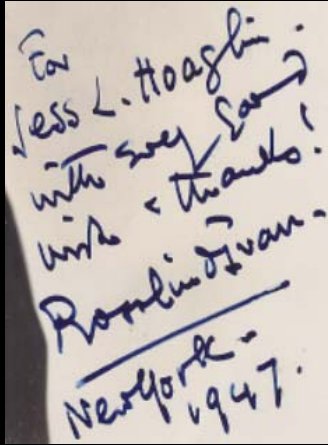 For
Jess L. Hoaglin.
with every good
wish & thanks!
Rosalind Ivan.
New York.
1947.